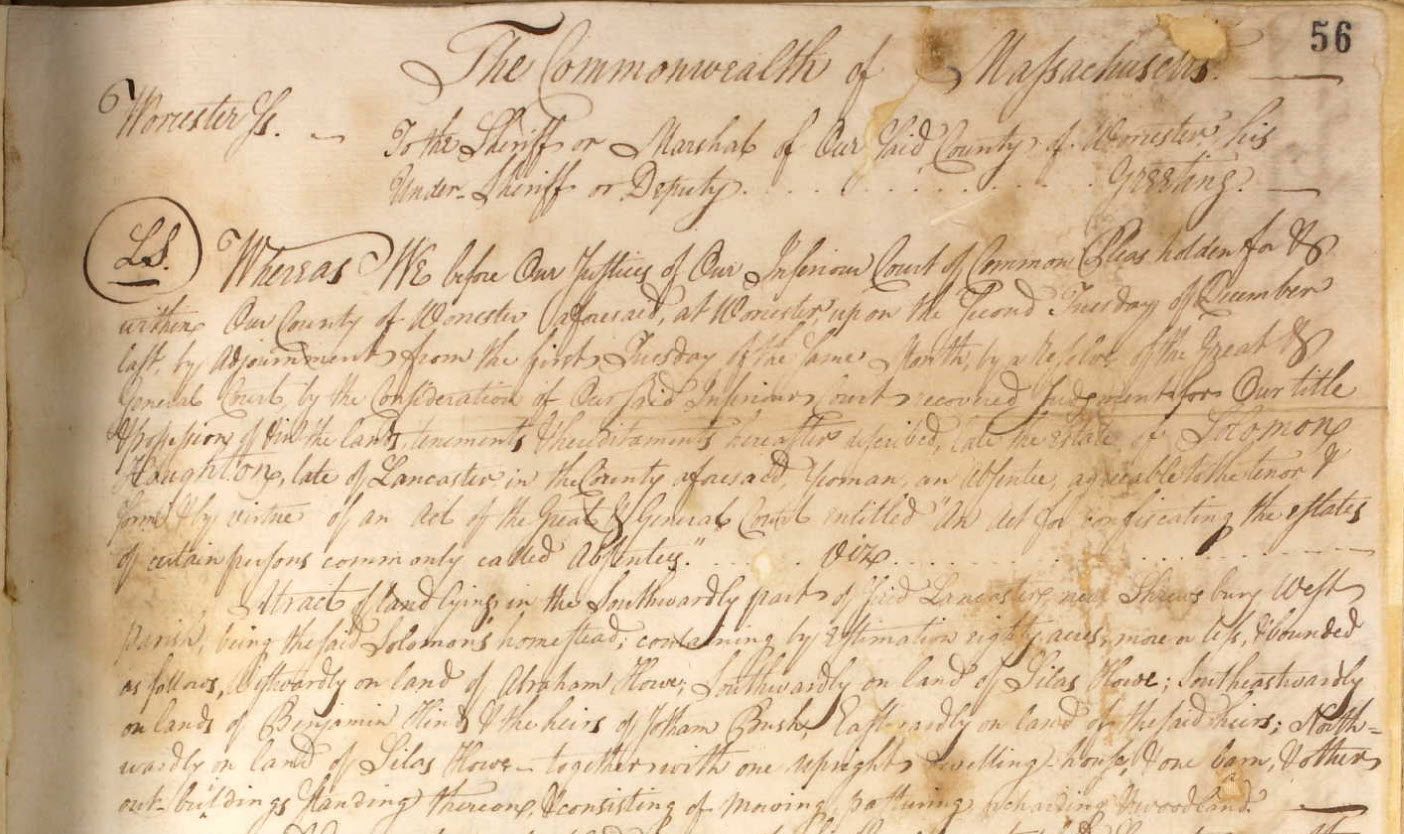 56
The Commonwealth of Massachusetts.
Worcester Ss.
To the Sheriff or Marshal of Our Said County of Worcester his
Under-Sheriff or Deputy. . . . . . . . . . Greeting.
L.S. Whereas We before Our Justices of Our Inferiour Court of Common Pleas holden for &
within Our County of Worcester aforesaid, at Worcester, upon the Second Tuesday of December
last, by Adjournment from the first Tuesday of the same Month, by a Resolve of the Great &
General Court, by the Consideration of Our said Inferiour Court recovered Judgment for Our title
& possession of & in the lands, tenements & hereditaments hereafter described, late the Estate of Solomon
Houghton, late of Lancaster in the County aforesaid, Yeoman, an Absentee, agreeable to the tenor &
form & by virtue of an Act of the Great & General Court entitled "An Act for confiscating the estates
of certain persons commonly called Absentees." . . . . . . viz. . . . . . . . . .
A tract of land lying in the Southwardly part of said Lancaster, near Shrewsbury West
Parish, being the said Solomon's homestead; containing by Estimation eighty acres, more or less, & bounded
as follows, Westwardly on land of Abraham Howe; Southwardly on land of Silas Howe; Southeastwardly
on lands of Benjamin Hinds & the heirs of Jotham Bush, Eastwardly on land of the said heirs; North=
wardly on land of Silas Howe - together with one upright dwelling-house, & one barn, & other
out-buildings standing thereon, & consisting of mowing, pasturing, orcharding & woodland.